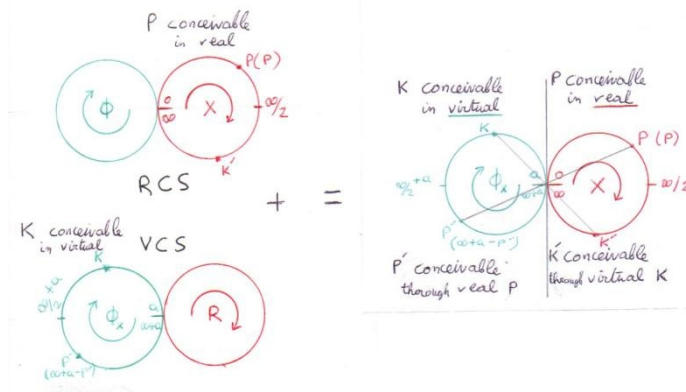 P conceivable
in real
P(P)
Φ
0
∞
X
∞/2
K'
RCS
+
=
K conceivable
in virtual
VCS
K
∞/2 +a
Φx
a
∞+a
R
P'
(∞+a-p')
K conceivable
in virtual
P conceivable
in real
K
P (P)
∞/2 +a
Φx
a
∞+a
0
∞
X
∞/2
P'
(∞+a-p')
K'
P' conceivable
thorough real P
K' conceivable
through virtual K